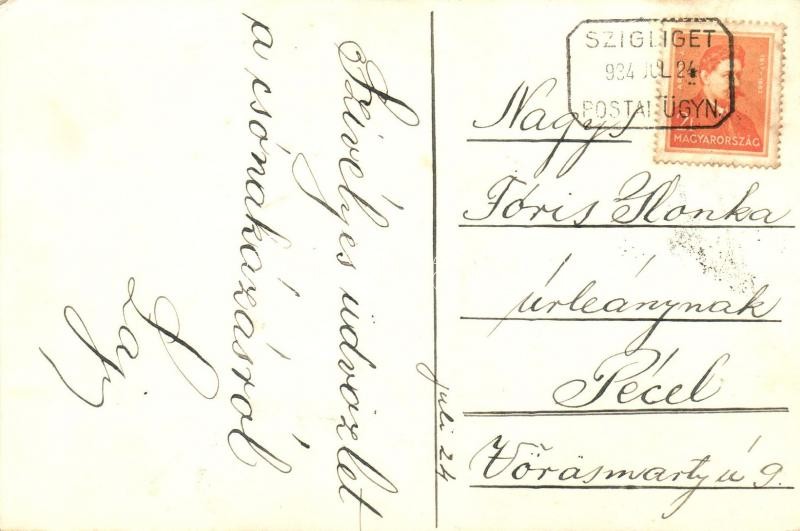 Szívélyes üdvözlet
a csónakázásról
Laj
juli 24
SZIGLIGET
934 JUL 24
POSTAI ÜGYN.
MAGYARORSZÁG
Nagys
Fóris Ilonka
úrleánynak
Pécel
Vörösmarty ú 9.